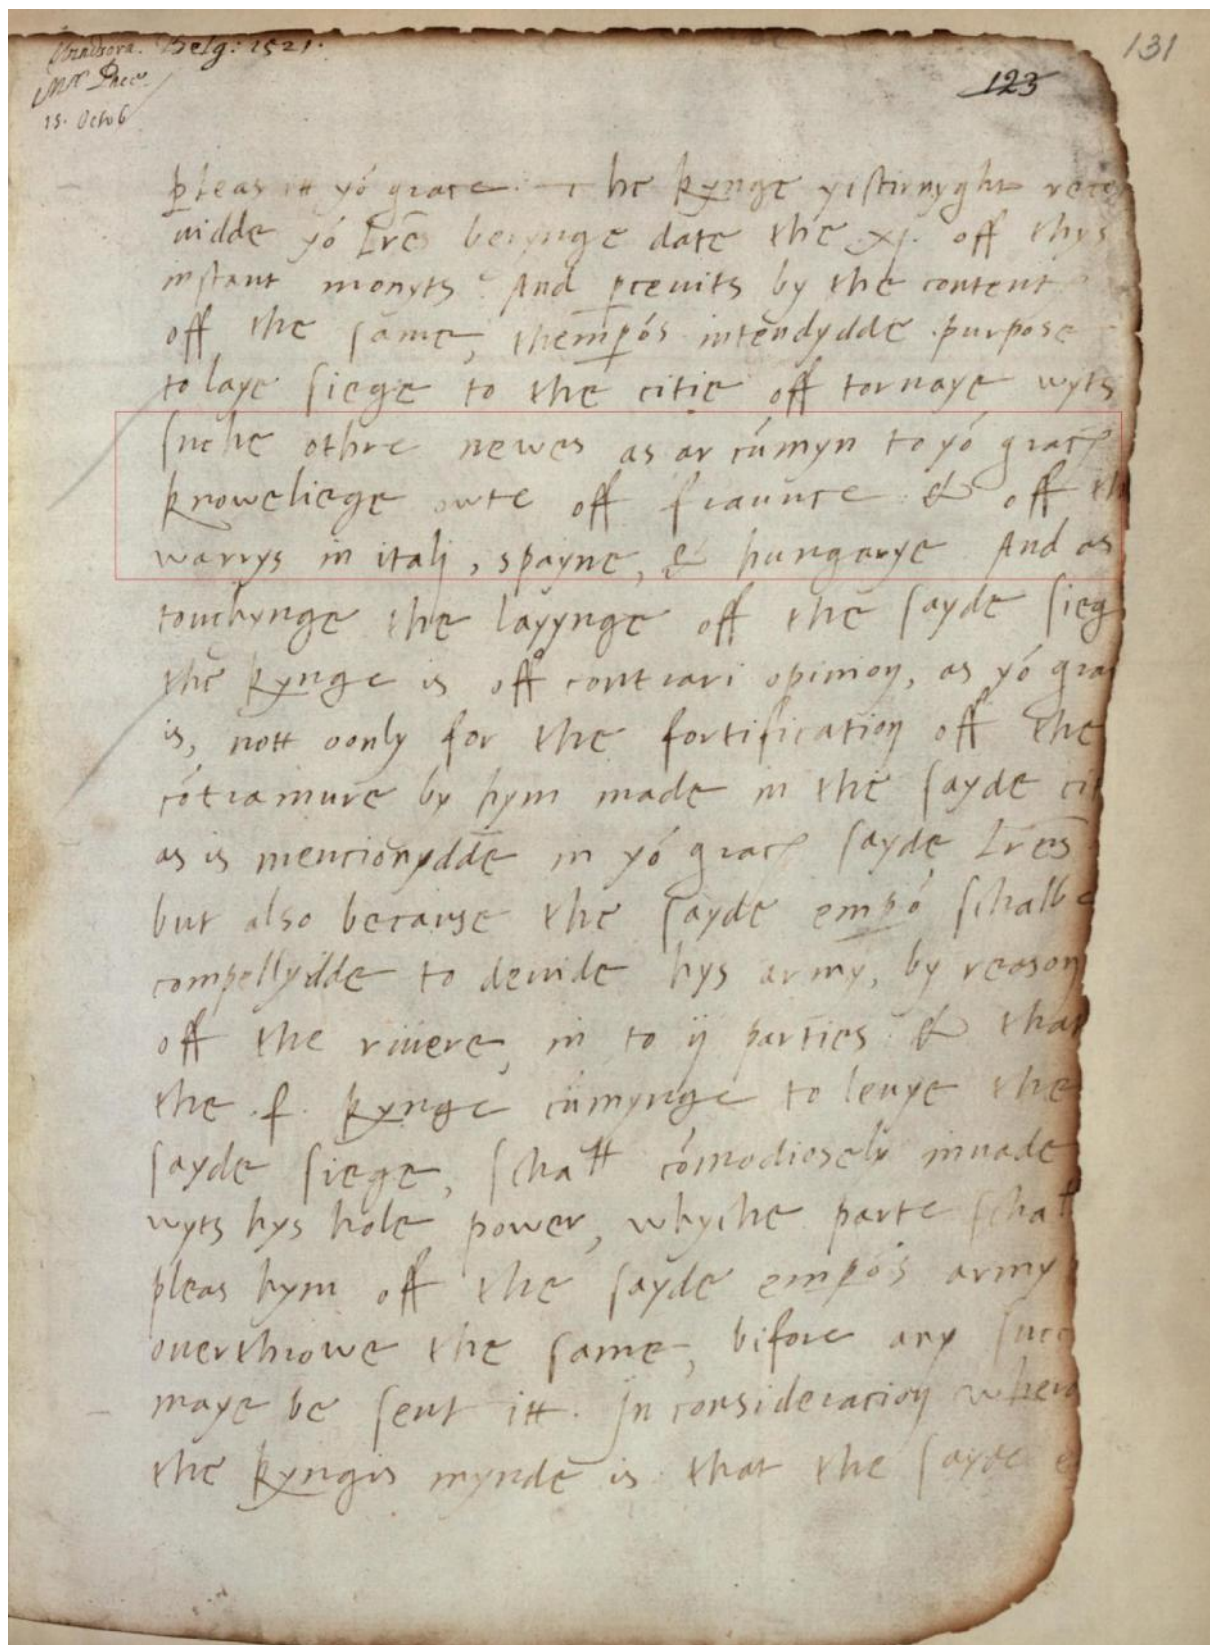 Windsora. Belg: 1521.
Mr Pace.
15. Octob
131
123
pleas itt yor grace. The kynge yisternyght rece
uidde yor lres berynge date the xj. off thys
instant monyth. And pceuith by the content
off the same, themprors intendydde purpose
to laye siege to the citie off tornaye wyth
suche othre newes as ar cumyn to yor graces
knoweliege owte off fraunce & off th
warrys in itali, spayne, & hungarye And as
touchynge the layynge off the sayde sieg
the kynge is off contrari opinion, as yor gra
is, nott oonly for the fortification off the
cotramure by hym made in the sayde cit
as is mencionydde in yor graces sayde lres
but also becawse the sayde empor schalbe
compellydde to deuide hys army, by reason
off the riuere, in to ij parties & that
the .f. kynge cumynge to leuye the
sayde siege, schall comodiosely inuade
wyth hys hole power, whyche parte schall
pleas hym off the sayde empors army
ouerthrowe the same, bifore any succ
maye be sent itt. In consideracion wheroff
the kyngis mynde is that the sayde e